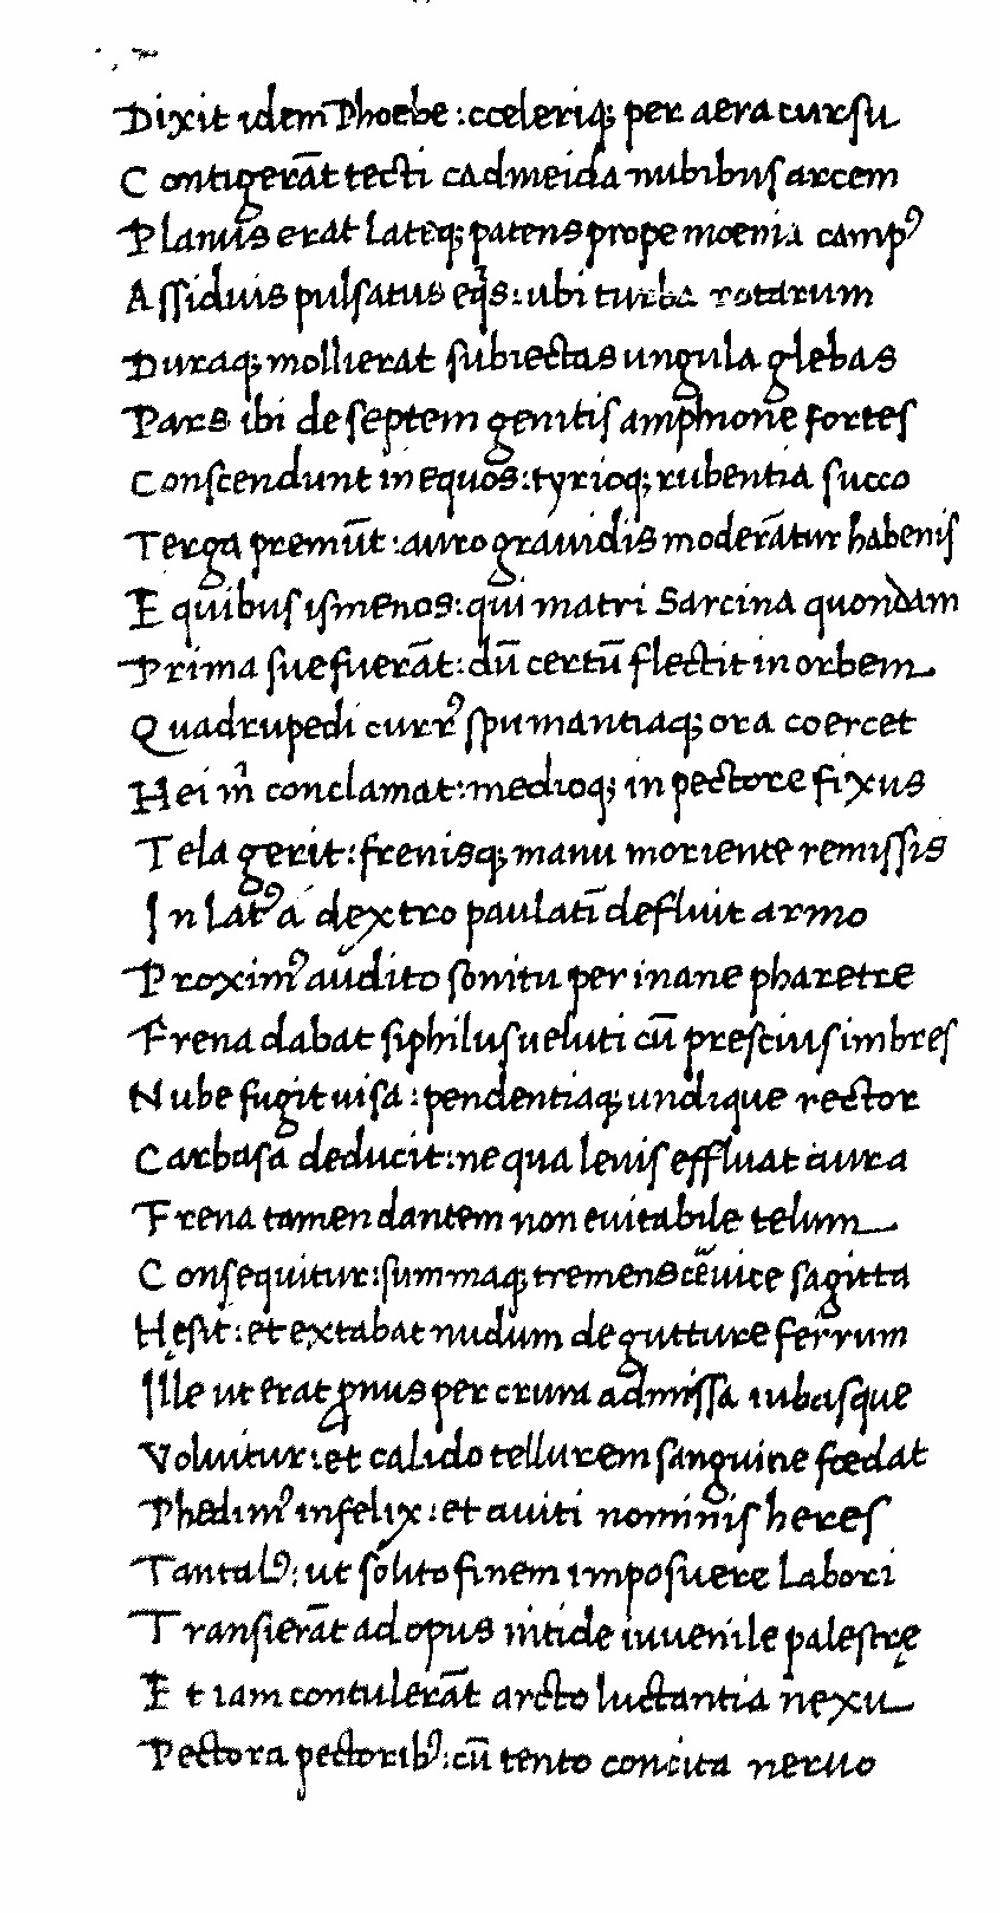 Dixit idem Phoebe : cceleriq; per aera cursu
Contigerāt tecti cadmeida nubibus arcem
Planus erat lateq; patens prope moenia campꝰ
Assiduis pulsatus eq̍s : ubi turba rotarum
Duraq; mollierat subiectas ungula glebas
Pars ibi de septem genitis amphione fortes
Conscendunt in equos : tyrioq; rubentia succo
Terga premūt : auro grauidis moderātur habenis
E quibus ismenos : qui matri sarcina quondam
Prima sue fuerāt : dū certū flectit in orbem
Quadrupedi currꝰ spumantiaq; ora coercet
Hei m̍ conclamat : medioq; in pectore fixus
Tela gerit : frenisq; manu moriente remissis
In latꝰ á dextro paulatī defluit armo
Proximꝰ audito sonitu per inane pharetre
Frena dabat siphilus ueluti cū prescius imbres
Nube fugit uisa : pendentiaq; undique rector
Carbasa deducit : ne qua leuis effluat aura
Frena tamen dantem non euitabile telum
Consequitur : summaq; tremens ceuice sagitta
Hęsit : et extabat nudum de gutture ferrum
Ille ut erat ꝓnus per crura admissa iubasque
Voluitur : et calido tellurem sanguine foedat
Phedimꝰ infelix : et auiti nominis heres
Tantalꝰ : ut solito finem imposuere labori
Transierāt ad opus nitide iuuenile palestrę
Et iam contulerāt arcto luctantia nexu
Pectora pectoribꝰ : cū tento concita neruo